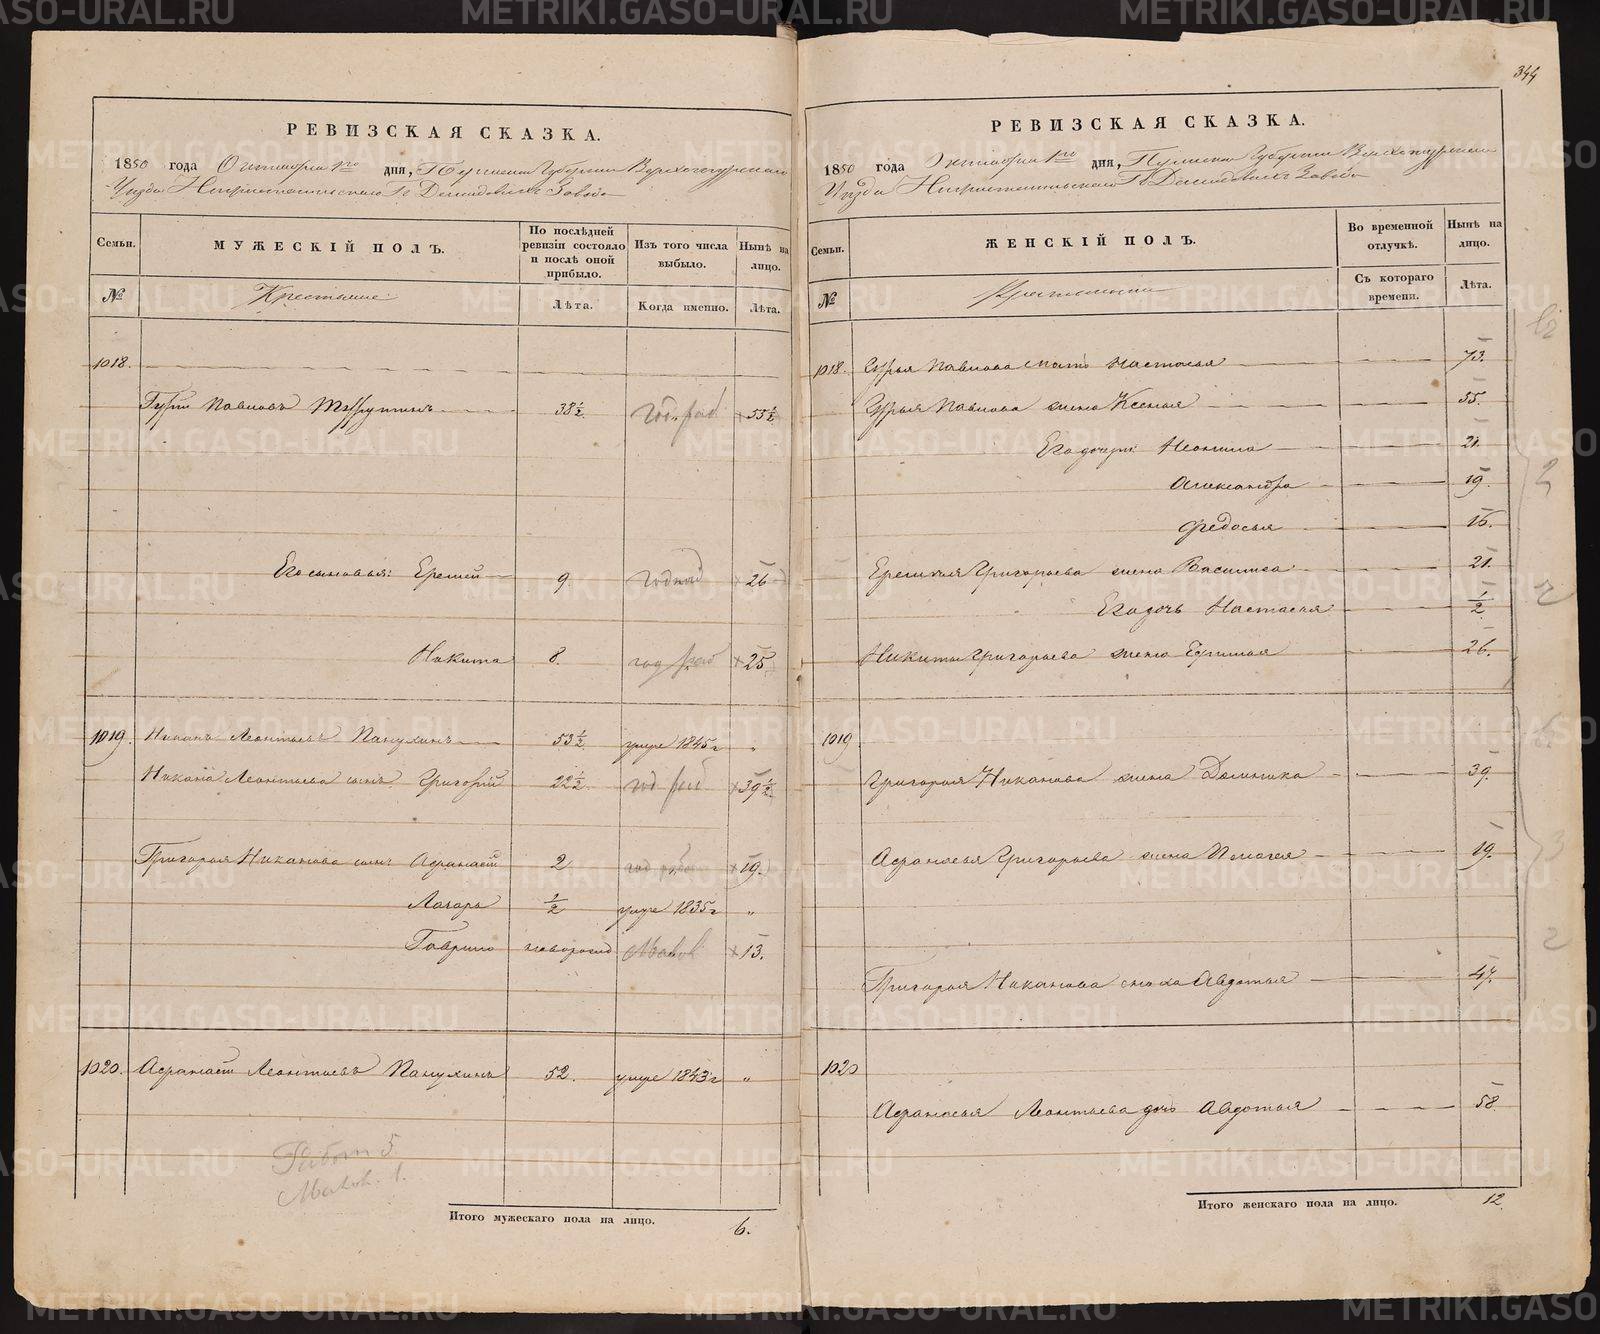 344
РЕВИЗСКАЯ СКАЗКА.
1850 года Октября 1го дня, Пермской Губернии Верхотурскаго
Уезда Нижнетагильскаго Гг Демидовых Завода
Семьи. МУЖЕСКІЙ ПОЛЪ. По послѣдней ревизіи состояло и послѣ оной прибыло. Изъ того числа выбыло. Нынѣ на лицо.
№ Крестьяне: Лѣта. Когда именно. Лѣта.
1018.
Павловъ 38½ год. раб 55½
Его сыновья: Еремей 9. год раб 26
Никита 8. год раб 25
1019. Никанъ Леонтьевъ Панухинъ 53½ умре 1845 г „
Никана Леонтьева сынъ Григорій 22½ год раб 39½
Григорья Никанова сынъ Афанасій 2 год 19.
Лазарь ½ умре 1835 г „
Гаврило новорожд Малов 13.
1020. Афанасій Леонтьевъ Панухинъ 52. умре 1843 г „
Работ 5
Малов. 1.
Итого мужескаго пола на лицо. 6.
РЕВИЗСКАЯ СКАЗКА.
1850 года Октября 1го дня, Пермской Губернии Верхотурскаго
Уезда Нижнетагильскаго Гг Демидовых Завода
Семьи. ЖЕНСКІЙ ПОЛЪ. Во временной отлучкѣ. Нынѣ на лицо.
№ Съ котораго времени. Лѣта.
1018. Гурья Павлова мать Настасья 73.
Гурья Павлова жена Ксенья 55.
Его дочери: Неонила 21.
Александра 19.
Федосья 16.
Еремея Григорьева жена Василиса 21.
Его дочь Настасья ½
Никиты Григорьева жена 26.
1019
Григорья Никанова жена Домника 39.
Афанасья Григорьева жена Пелагея 19.
Григорья Никанова сноха Авдотья 47.
1020
Афанасья Леонтьева дочь Авдотья 58.
Итого женскаго пола на лицо. 12
METRIKI.GASO-URAL.RU